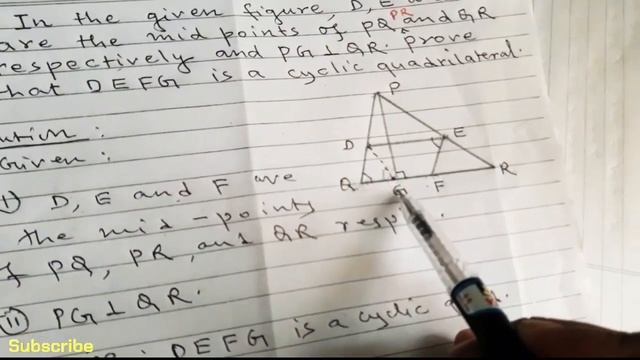 In the given figure, D, E
are the mid points of PQ, PR and QR
respectively and PG ⊥ QR. Prove
that DEFG is a cyclic quadrilateral.
ution:
Given:
i) D, E and F are
the mid-points
of PQ, PR, and QR resp.
ii) PG ⊥ QR.
DEFG is a cyclic
P
D
E
Q
G
F
R
Subscribe